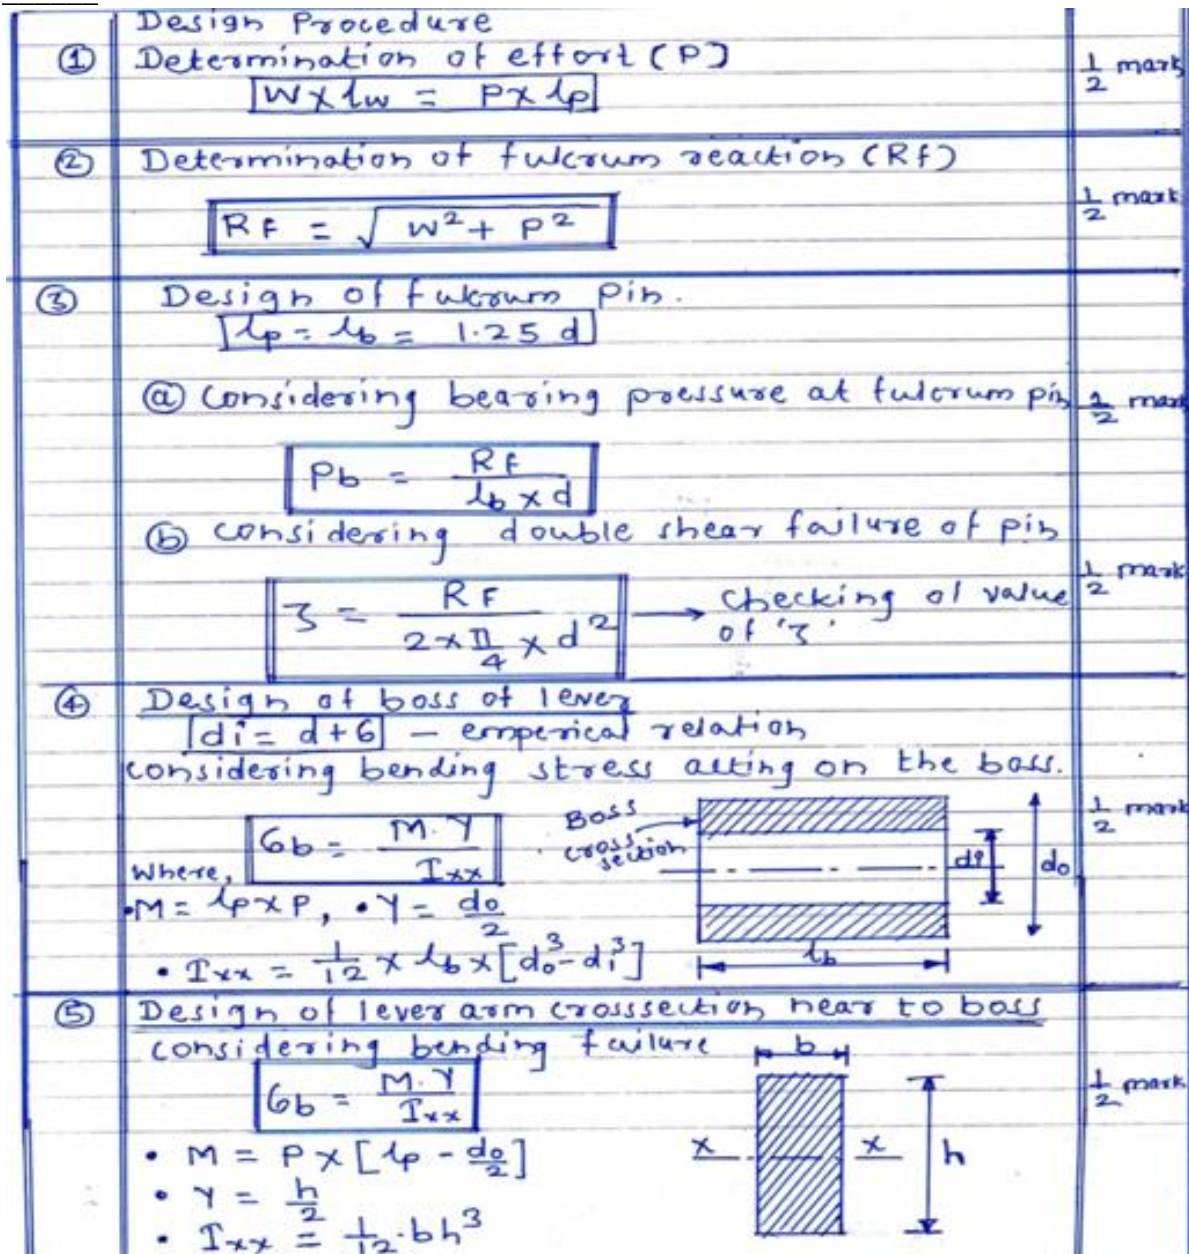 Design Procedure
① Determination of effort (P)
W x lw = P x lp
1/2 mark
② Determination of fulcrum reaction (Rf)
RF = √ W² + P²
1/2 mark
③ Design of fulcrum Pin.
lp = lb = 1.25 d
ⓐ considering bearing pressure at fulcrum pin 1/2 mark
Pb = RF / lb x d
ⓑ considering double shear failure of pin
1/2 mark
ζ = RF / 2 x π/4 x d² → checking of value
of 'ζ'
④ Design of boss of lever
di = d+6 – emperical relation
considering bending stress acting on the boss.
1/2 mark
6b = M.Y / Ixx
Boss
cross
section
di do
where,
• M = lp x P, • Y = do/2
• Ixx = 1/12 x lb x [do³ - di³]
lb
⑤ Design of lever arm crosssection near to boss
considering bending failure
b
6b = M.Y / Ixx
1/2 mark
• M = P x [lp - do/2]
x x h
• Y = h/2
• Ixx = 1/12 . bh³